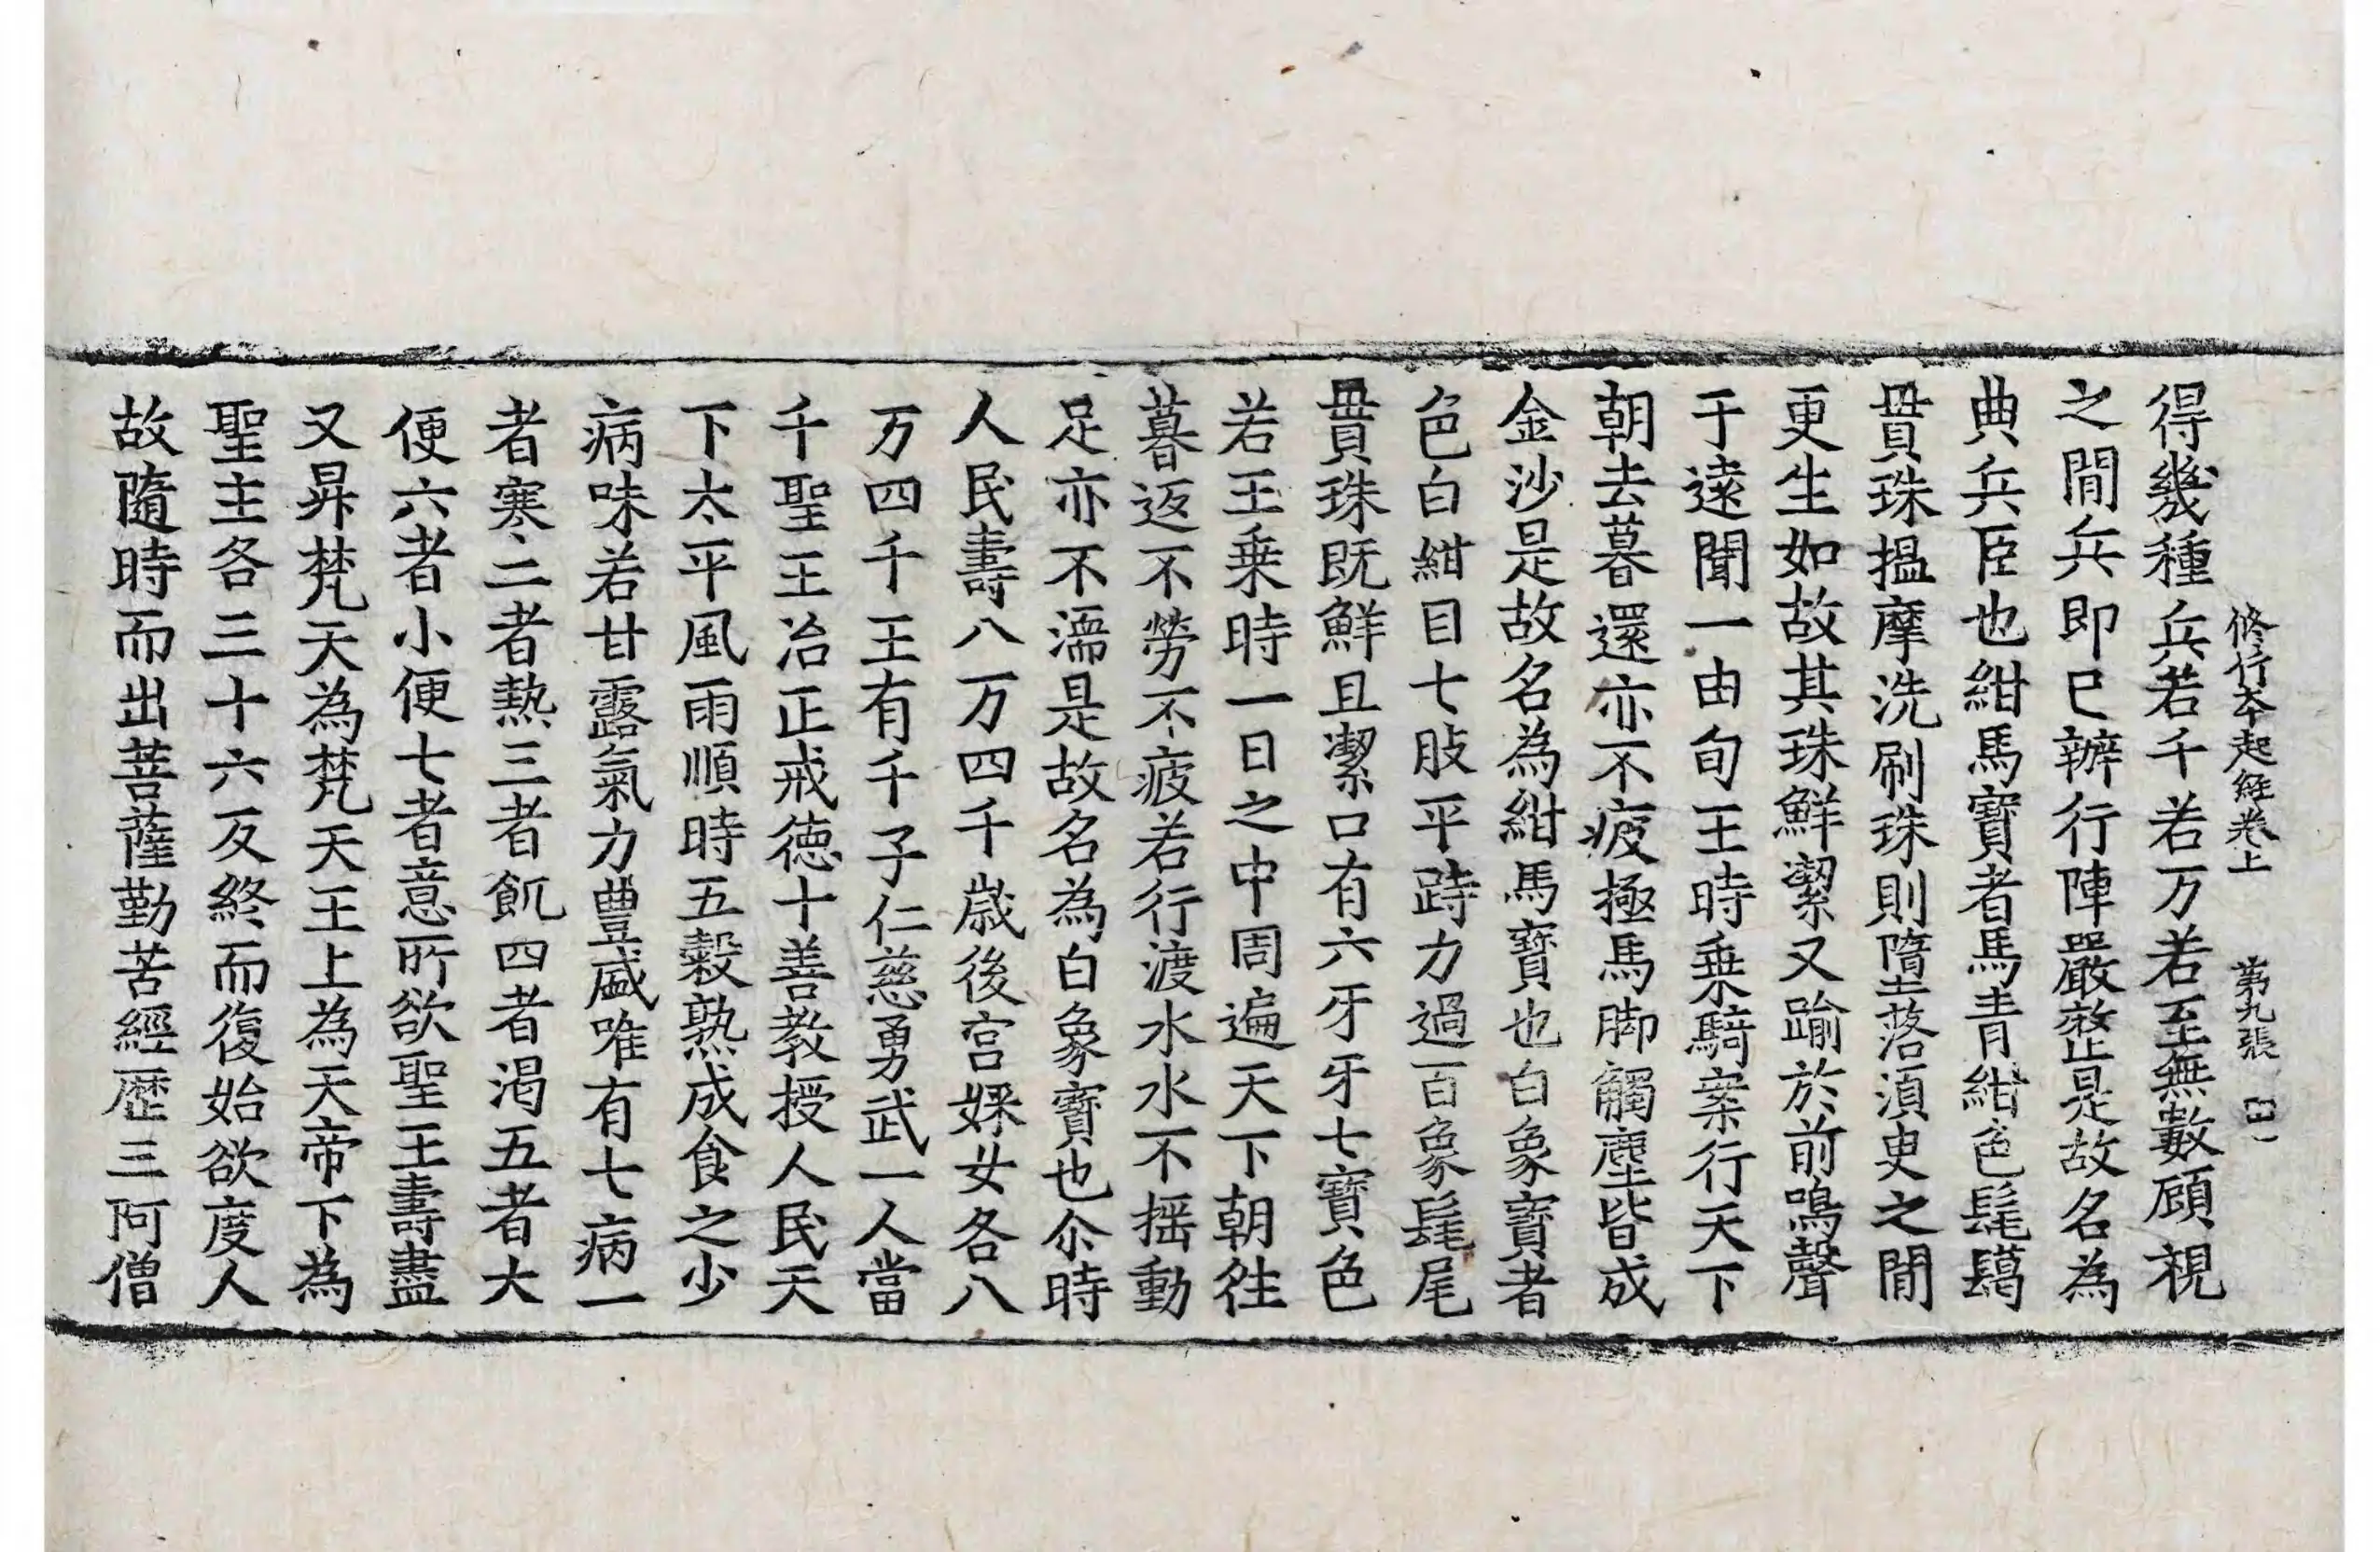 修行夲起經卷上　第九張　
得幾種兵若千若万若至無數顧視
之閒兵即已辦行陣嚴整是故名為
典兵臣也紺馬寶者馬青紺色髦鬣
貫珠搵摩洗刷珠則墮落湏臾之閒
更生如故其珠鮮潔又踰於前鳴聲
于遠聞一由旬王時乗騎案行天下
朝去暮還亦不疲極馬脚觸塵皆成
金沙是故名為紺馬寶也白象寶者
色白紺目七肢平跱力過百象髦尾
貫珠既鮮且潔口有六牙牙七寶色
若王乗時一日之中周遍天下朝徃
暮返不勞不疲若行渡水水不揺動
足亦不濡是故名為白象寶也尒時
人民壽八万四千歲後宫婇女各八
万四千王有千子仁慈勇武一人當
千聖王治正戒德十善教授人民天
下太平風雨順時五穀熟成食之少
病味若甘露氣力豐盛唯有七病一
者寒二者熱三者飢四者渴五者大
便六者小便七者意所欲聖王壽盡
又昇梵天為梵天王上為天帝下為
聖主各三十六反終而復始欲度人
故隨時而出菩薩勤苦經歷三阿僧